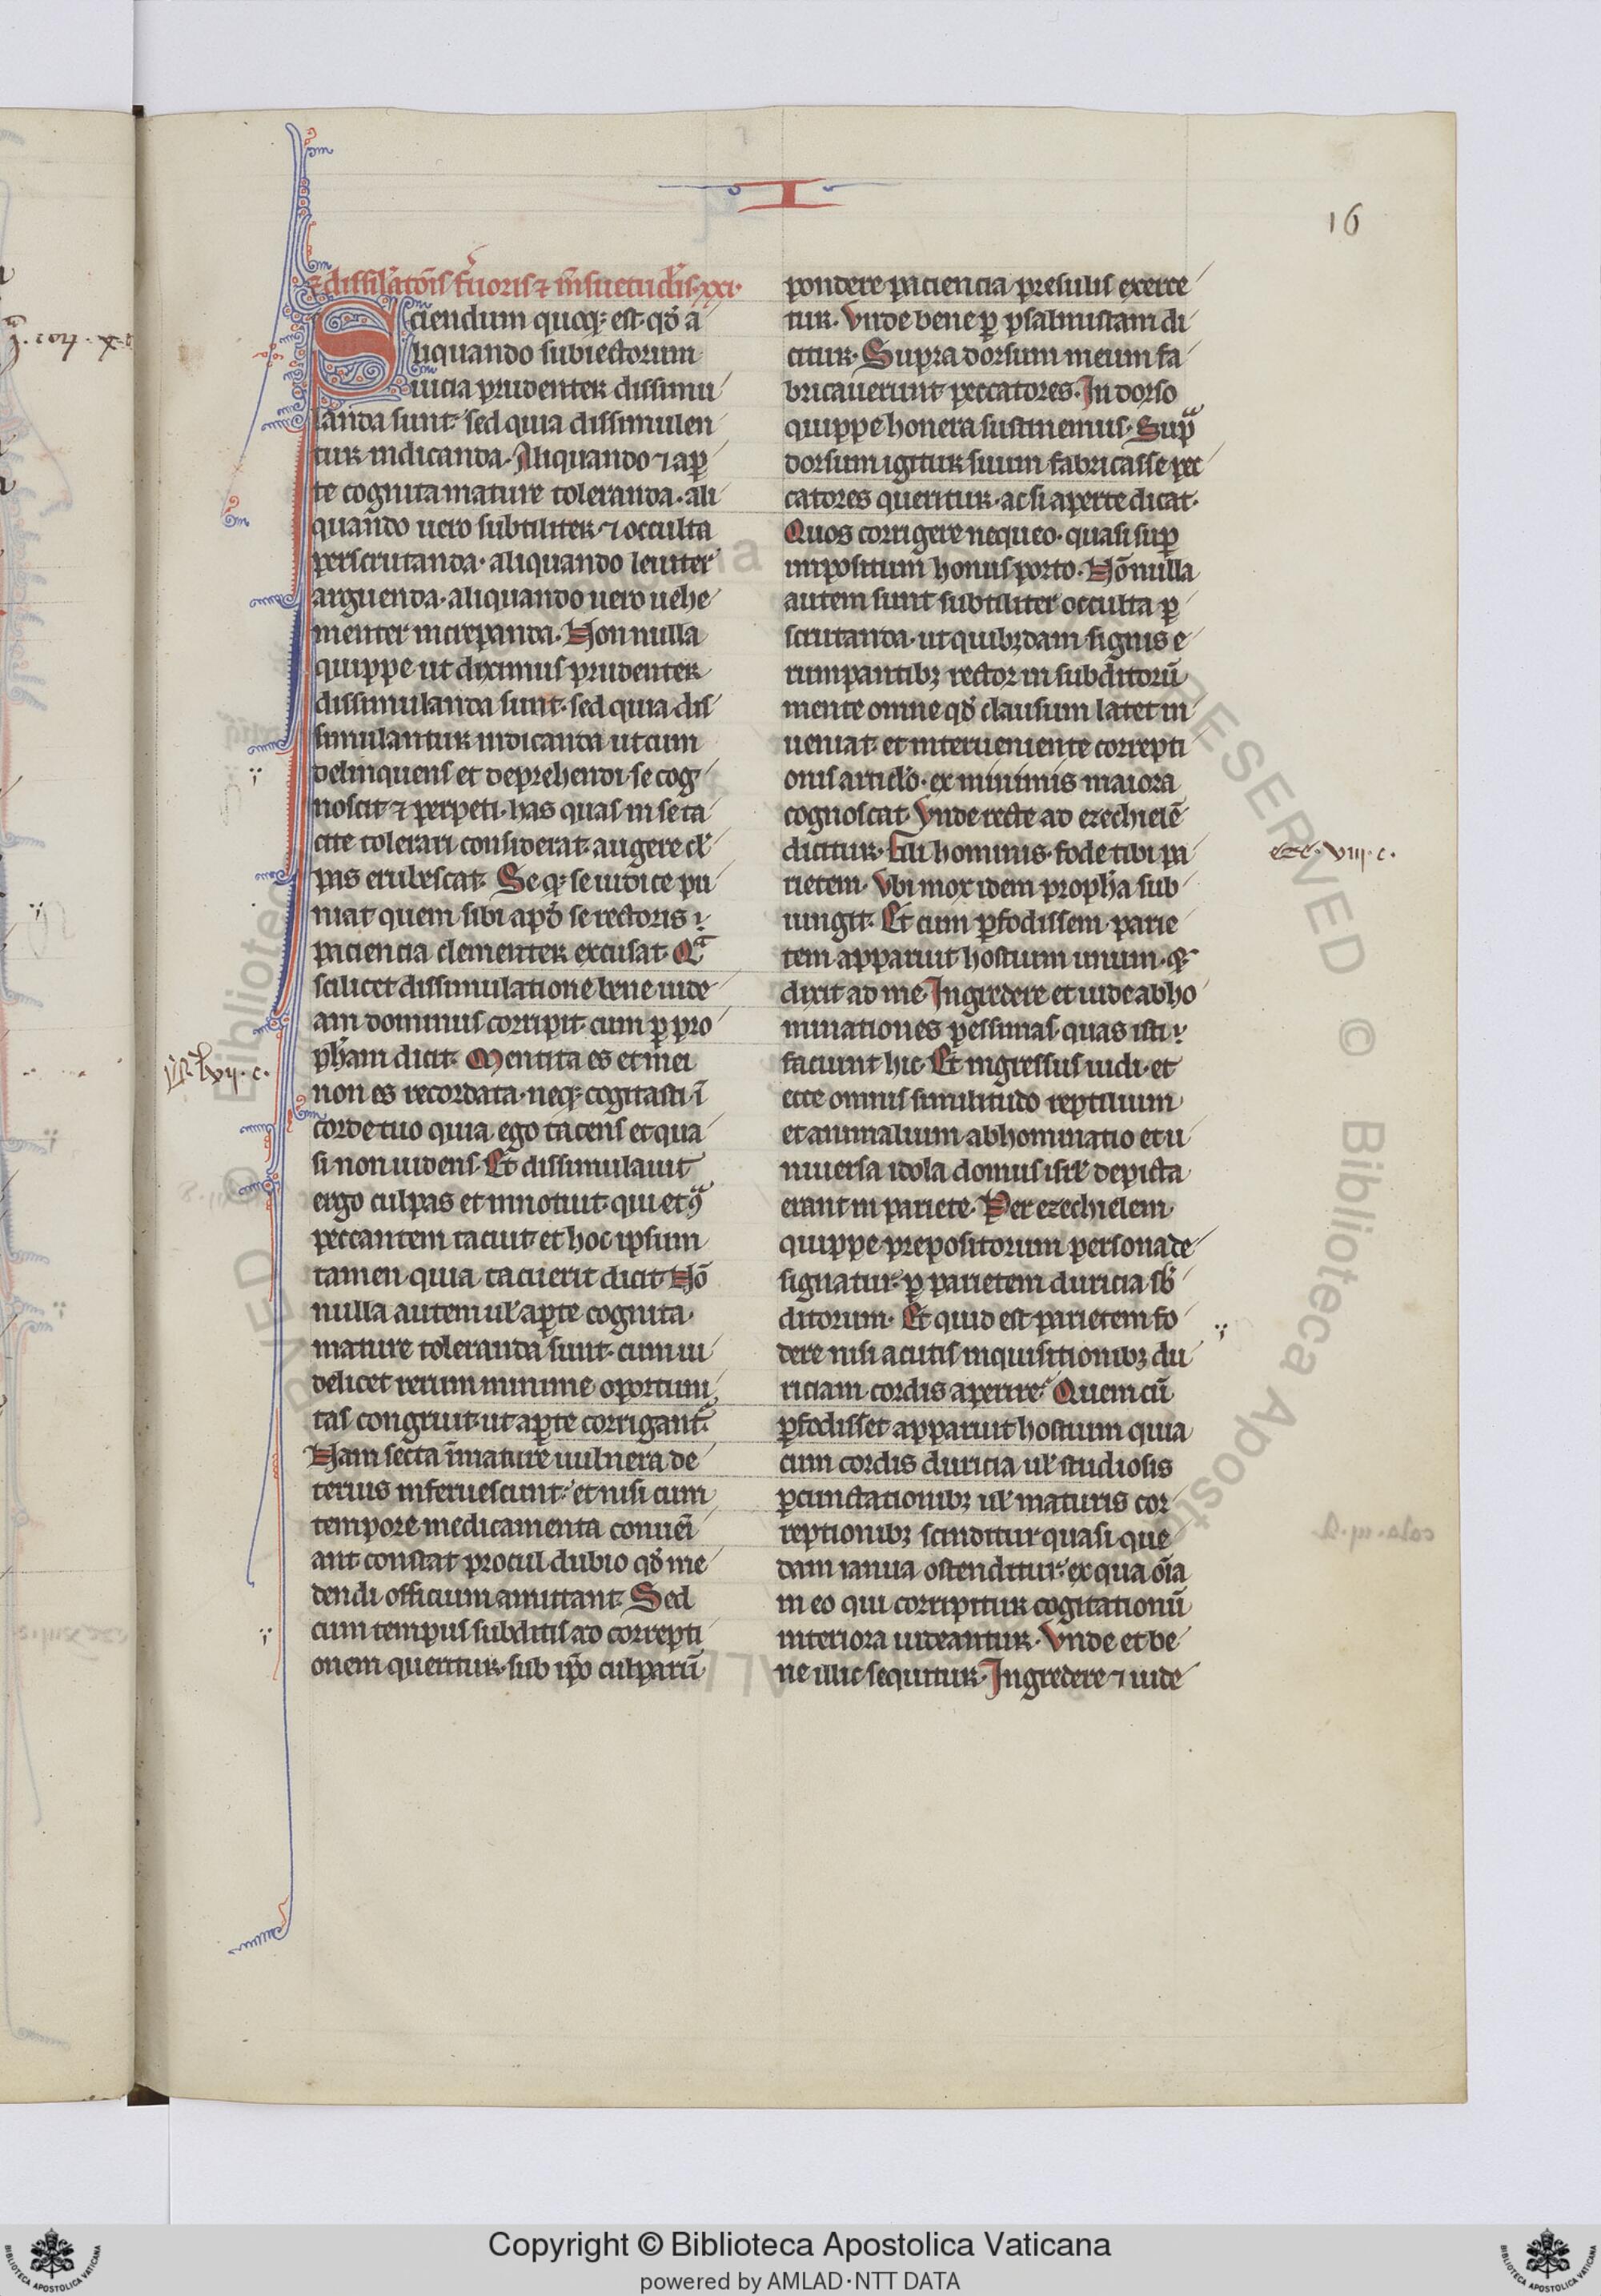 I
16
⁊ dissil̓atōis f̓uoris ⁊ m̄suetud̓is·xxi·
Sciendum quoq; est· qd̓ a
liquando subiectorum
uicia prudenter dissimu
landa sunt· sed quia dissimulen
tur indicanda. Aliquando ⁊ ap̱
te cognita mature toleranda· ali
quando uero subtiliter ⁊ occulta
perscrutanda· aliquando leniter
arguenda· aliquando uero uehe
menter increpanda. Non nulla
quippe ut diximus prudenter
dissimulanda sunt· sed quia dis
simulantur indicanda ut cum
delinquens et deprehendi se cog
noscit ⁊ perpeti· has quas in se ta
cite tolerari considerat augere cl̓
pas erubescat. Se q; se iudice pu
niat quem sibi apd̓ se rectoris
paciencia clementer excusat. Qᵃ
scilicet dissimulatione bene iude
am dominus corripit cum ꝑ pro
ph̓am dicit. Mentita es et mei
non es recordata· neq; cogitasti ī
corde tuo quia ego tacens et qua
si non uidens. Et dissimulauit
ergo culpas et innotuit· qui et ꝯᵃ
peccantem tacuit et hoc ipsum
tamen quia tacuerit dicit. Nō
nulla autem ul̓ aꝑte cognita
mature toleranda sunt· cum ui
delicet rerum minime oportuni
tas congruit· ut aꝑte corrigant᷑.
Nam secta īmature uulnera de
terius inferuescunt· et nisi cum
tempore medicamenta conueī
ant constat procul dubio qd̓ me
dendi officium amittant. Sed
cum tempus subditis ad correpti
onem queritur· sub ip̄o culparū
pondere paciencia presulis exerce
tur. Vnde bene ꝑ psalmistam di
citur. Supra dorsum meum fa
bricauerunt peccatores. In dorso
quippe honera sustinemus. Supᵃ
dorsum igitur suum fabricasse pec
catores queritur· ac si aperte dicat.
Quos corrigere nequeo· quasi suꝑ
impositum honus porto. Nōnulla
autem sunt subtiliter occulta ꝑ
scrutanda· ut quibꝫdam signis e
rumpantibꝫ rector in subditorū
mente omne qd̓ clausum latet in
ueniat· et interueniente correpti
onis articl̓o· ex minimis maiora
cognoscat. Vnde recte ad ezechielē
dicitur. Fili hominis· fode tibi pa
rietem. Vbi mox idem proph̓a sub
iungit. Et cum ꝑfodissem parie
tem apparuit hostium unum· ⁊
dixit ad me. Ingredere et uide abho
minationes pessimas quas isti
faciunt hic. Et ingressus uidi· et
ecce omnis similitudo reptilium
et animalium abhominatio et u
niuersa idola domus isrl̓ depicta
erant in pariete. Per ezechielem
quippe prepositorum persona de
signatur· ꝑ parietem duricia sb̓
ditorum. Et quid est parietem fo
dere nisi acutis inquisitionibꝫ du
riciam cordis aperire? Quem cū
ꝑfodisset apparuit hostium quia
cum cordis duricia ul̓ studiosis
ꝑcunctationibꝫ ul̓ maturis cor
reptionibꝫ scinditur quasi que
dam ianua ostenditur· ex qua oīa
in eo qui corripitur cogitationū
interiora uideantur. Vnde et be
ne illic sequitur. Ingredere ⁊ uide
eze· viii· c·
Copyright © Biblioteca Apostolica Vaticana
powered by AMLAD·NTT DATA